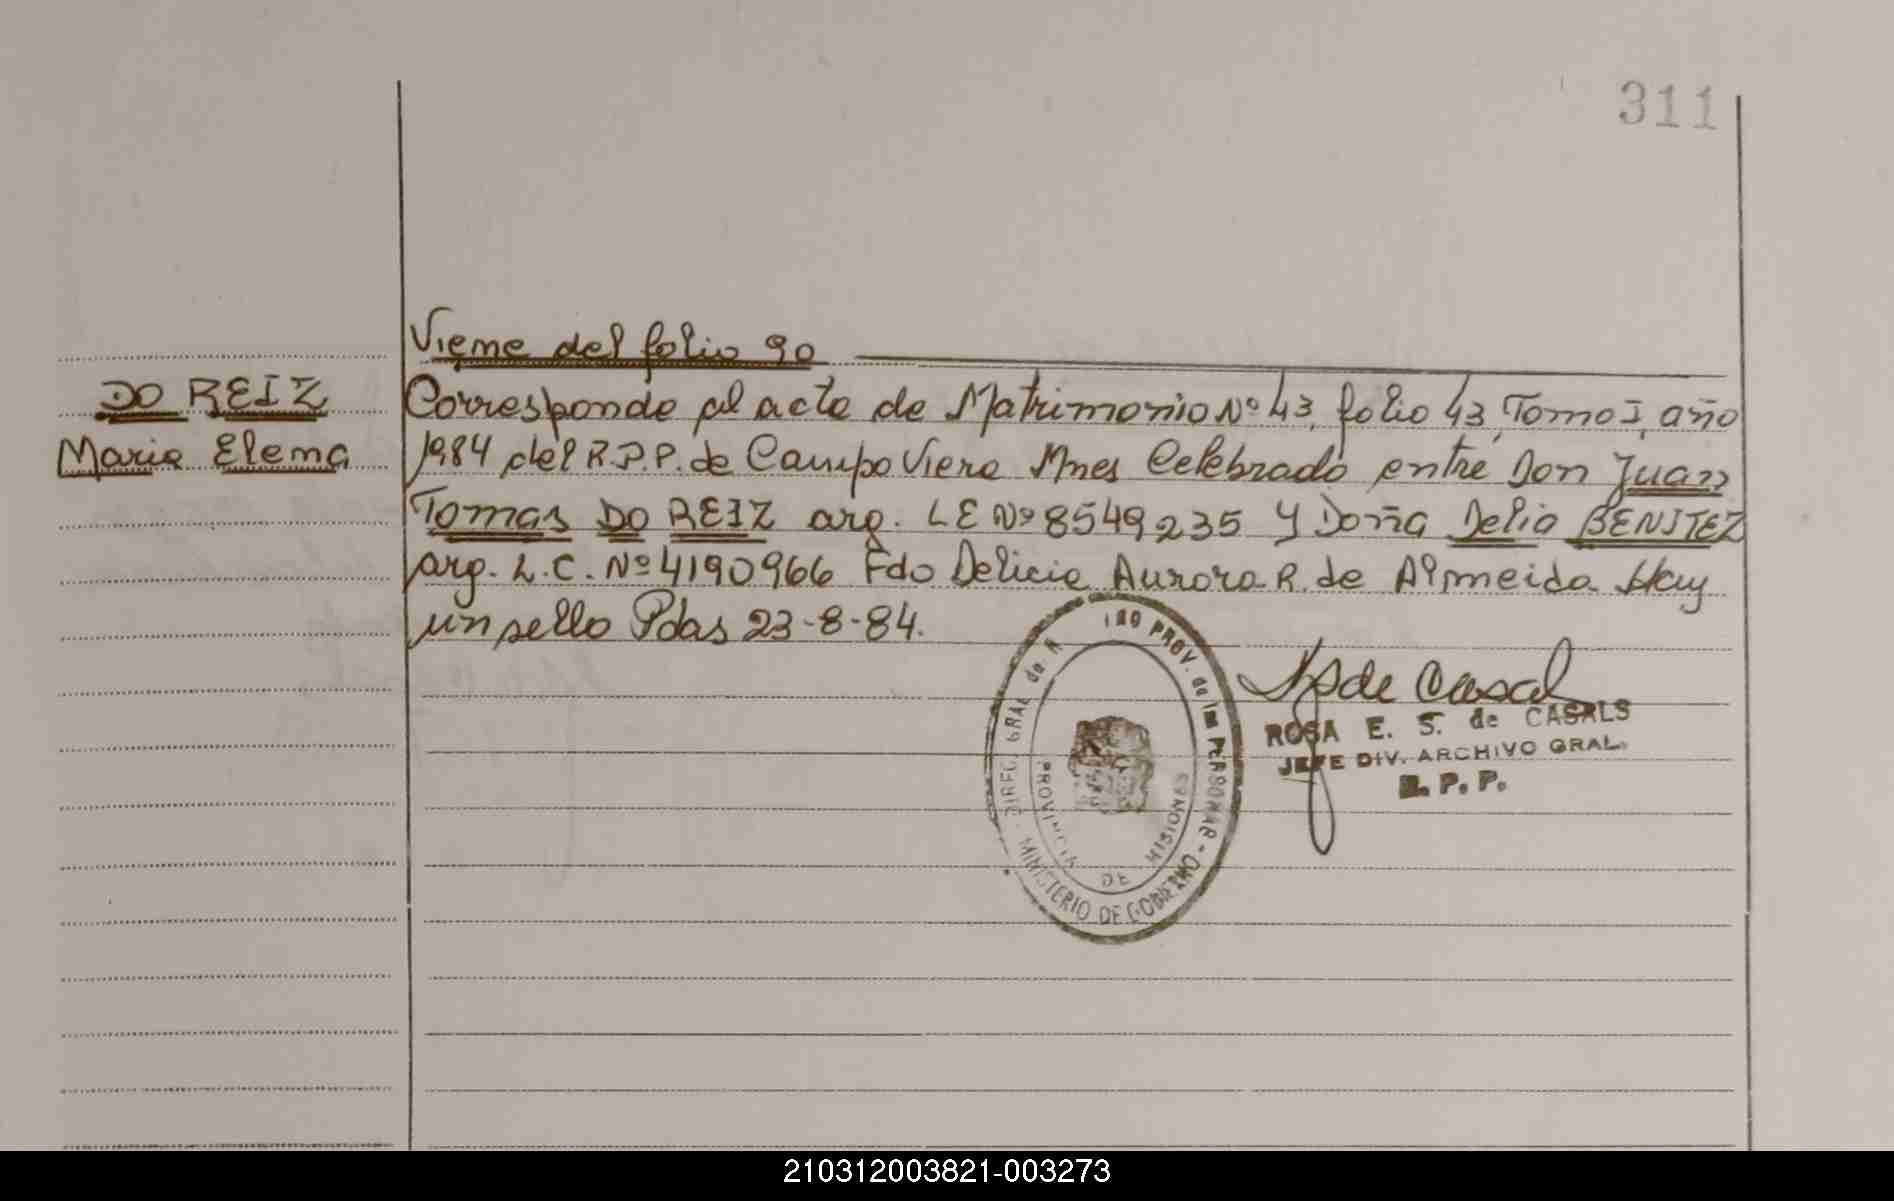 311
Viene del folio 90
DO REIZ
Maria Elena
Corresponde al acta de Matrimonio Nº 43, folio 43, Tomo I, año
1984 del R.P.P. de Campo Viera Mnes Celebrado entre Don Juan
Tomas DO REIZ arg. LE Nº 8549235 y Doña Delia BENITEZ
arg. L.C. Nº 4190966 Fdo Delicia Aurora R. de Almeida Hay
un sello Pdas 23-8-84.
de Casals
ROSA E. S. de CASALS
JEFE DIV. ARCHIVO GRAL.
R. P. P.
DIREC. GRAL de PROV. de las PERSONAS -
MINISTERIO DE GOBIERNO
PROVINCIA DE MISIONES
210312003821-003273